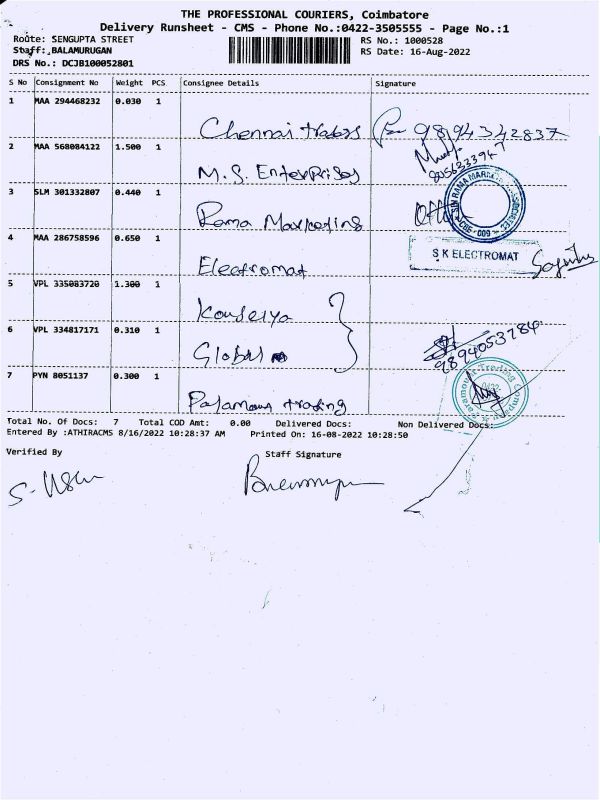 THE PROFESSIONAL COURIERS, Coimbatore
Delivery Runsheet - CMS - Phone No.:0422-3505555 - Page No.:1
Route: SENGUPTA STREET
RS No.: 1000528
Staff: BALAMURUGAN
RS Date: 16-Aug-2022
DRS No.: DCJB100052801
S No Consignment No Weight PCS Consignee Details Signature
1 MAA 294468232 0.030 1
Chennai traders 9894342837
2 MAA 568084122 1.500 1
M.S. Enterprises
3 SLM 301332807 0.440 1
Rama Marketing
4 MAA 286758596 0.650 1
Electromat
S K ELECTROMAT
5 VPL 335083720 1.300 1
6 VPL 334817171 0.310 1
Global 9894053784
7 PYN 8051137 0.300 1
trading
Total No. Of Docs: 7 Total COD Amt: 0.00 Delivered Docs: Non Delivered Docs:
Entered By :ATHIRACMS 8/16/2022 10:28:37 AM Printed On: 16-08-2022 10:28:50
Verified By
Staff Signature